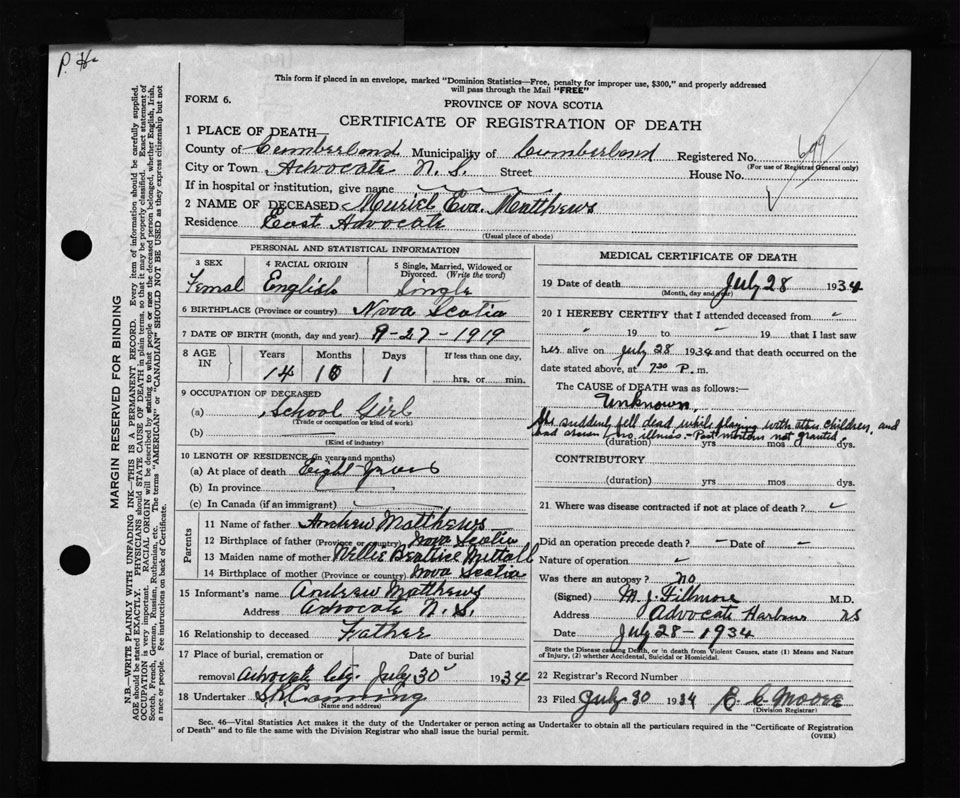 P. H
This form if placed in an envelope, marked "Dominion Statistics—Free, penalty for improper use, $300," and properly addressed
will pass through the Mail "FREE"
FORM 6.
PROVINCE OF NOVA SCOTIA
CERTIFICATE OF REGISTRATION OF DEATH
1 PLACE OF DEATH—
County of Cumberland Municipality of Cumberland Registered No. 699
(For use of Registrar General only)
City or Town Advocate N. S. Street House No.
If in hospital or institution, give name
2 NAME OF DECEASED Muriel Eva Matthews
Residence East Advocate
(Usual place of abode)
PERSONAL AND STATISTICAL INFORMATION
3 SEX 4 RACIAL ORIGIN 5 Single, Married, Widowed or Divorced. (Write the word)
Femal English Single
6 BIRTHPLACE (Province or country) Nova Scotia
7 DATE OF BIRTH (month, day and year) 9-27-1919
8 AGE IN Years Months Days If less than one day,
14 10 1 hrs. or min.
9 OCCUPATION OF DECEASED
(a) School Girl
(Trade or occupation or kind of work)
(b)
(Kind of industry)
10 LENGTH OF RESIDENCE (in years and months)
(a) At place of death Eight years
(b) In province
(c) In Canada (if an immigrant)
Parents
11 Name of father Andrew Matthews
12 Birthplace of father (Province or country) Nova Scotia
13 Maiden name of mother Nellie Beattice
14 Birthplace of mother (Province or country) Nova Scotia
15 Informant's name Andrew Matthews
Address Advocate N. S.
16 Relationship to deceased Father
17 Place of burial, cremation or removal Date of burial
Advocate Ctg. July 30 1934
18 Undertaker Canning
(Name and address)
MEDICAL CERTIFICATE OF DEATH
19 Date of death July 28 1934
(Month, day and year)
20 I HEREBY CERTIFY that I attended deceased from
" 19 to " 19 that I last saw
her alive on July 28 1934 and that death occurred on
date stated above, at 7 30 P. m.
The CAUSE of DEATH was as follows:—
Unknown,
She suddenly fell dead while playing with other children, and
had shown no illness.- Post mortem not granted
(duration) yrs mos dys.
CONTRIBUTORY
(duration) yrs mos dys.
21 Where was disease contracted if not at place of death?
Did an operation precede death? – Date of –
Nature of operation –
Was there an autopsy? no
(Signed) M. J. Fillmore M.D.
Address Advocate Harbour NS
Date July 28-1934
State the Disease causing Death, or in death from Violent Causes, state (1) Means and Nature
of Injury, (2) whether Accidental, Suicidal or Homicidal.
22 Registrar's Record Number
23 Filed July 30 1934 E. C. Moore
(Division Registrar)
Sec. 46—Vital Statistics Act makes it the duty of the Undertaker or person acting as Undertaker to obtain all the particulars required in the "Certificate of Registration
of Death" and to file the same with the Division Registrar who shall issue the burial permit.
(OVER)
MARGIN RESERVED FOR BINDING
N.B.—WRITE PLAINLY WITH UNFADING INK—THIS IS A PERMANENT RECORD. Every item of information should be carefully supplied.
AGE should be stated EXACTLY. PHYSICIANS should STATE CAUSE OF DEATH in plain terms, so that it may be properly classified. Exact statement of
OCCUPATION is very important. RACIAL ORIGIN will be described by stating to what people or race the deceased person belonged, whether English, Irish,
Scotch, French, German, Russian, Ruthenian, etc. The terms "AMERICAN" or "CANADIAN" SHOULD NOT BE USED as they express citizenship but not
a race or people. Fee instructions on back of Certificate.